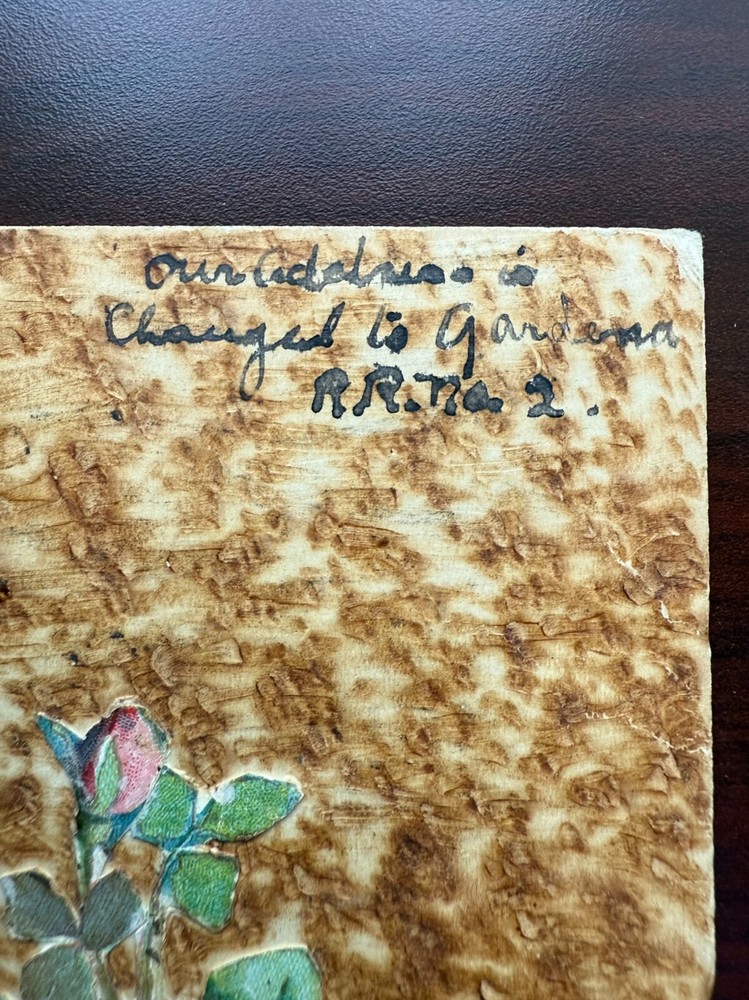 our address is
Changed to Gardena
R.R. No. 2.